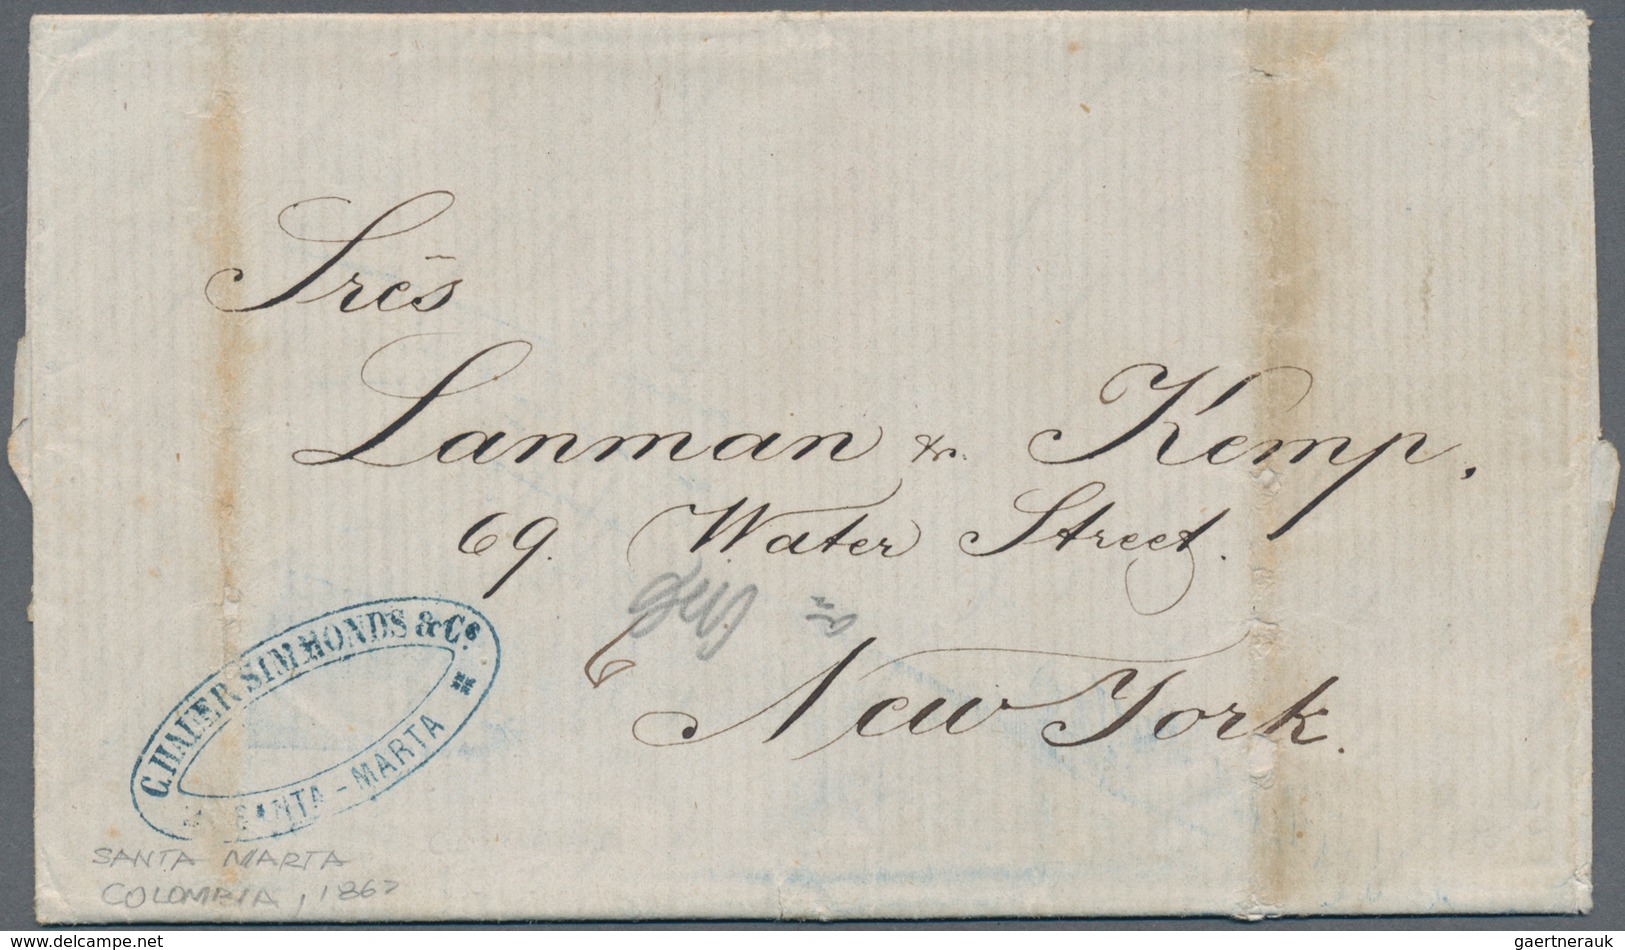 Srēs
Lanman & Kemp,
69. Water Street.
New York.
G. HAUER SIMMONDS & Cº
SANTA-MARTA
SANTA MARTA
COLOMBIA, 1867
www.delcampe.net
gaertnerauk